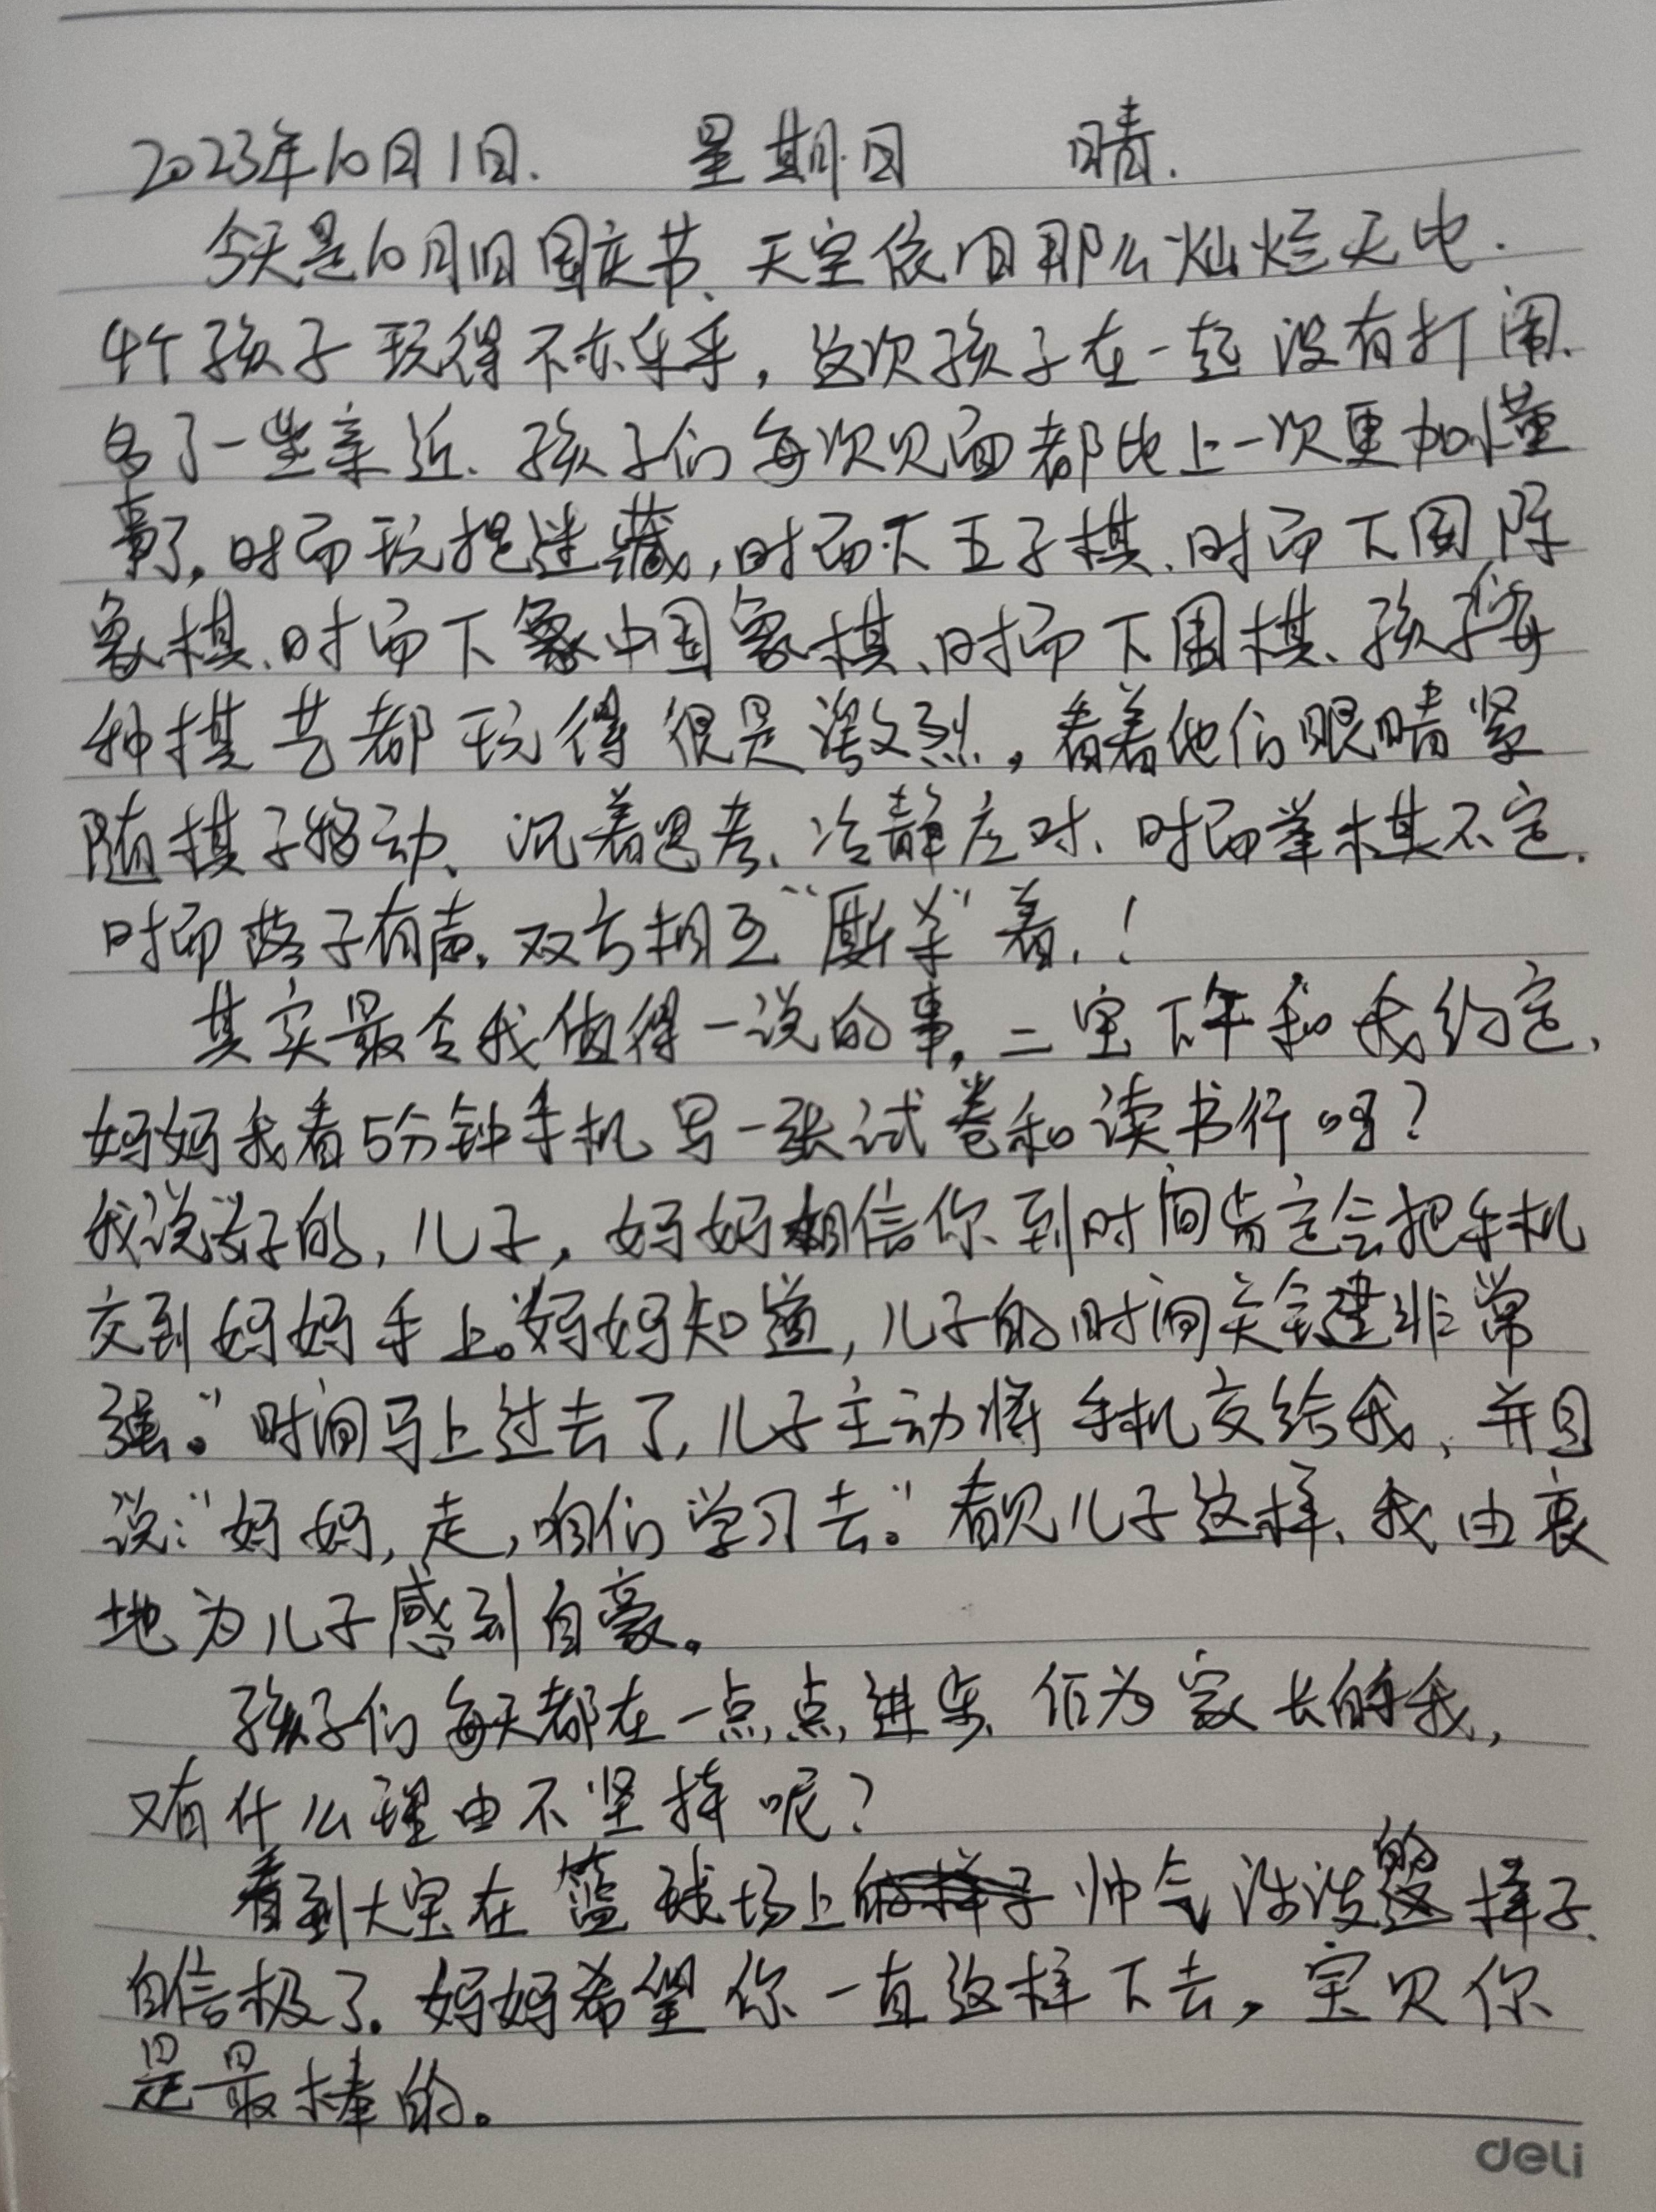 2023年10月1日. 星期日 晴.
今天是10月1日国庆节、天空依旧那么灿烂无比.
4个孩子玩得不亦乐乎，这次孩子在一起没有打闹.
多了一些亲近.孩子们每次见面都比上一次更加懂
事了,时而玩捉迷藏,时而下五子棋.时而下国际
象棋、时而下中国象棋、时而下围棋、孩子每
种棋艺都玩得很是激烈，看着他们眼睛紧
随棋子移动、沉着思考、冷静应对、时而举棋不定.
时而落子有声.双方相互“厮杀”着.！
其实最令我值得一说的事,二宝下午和我约定、
妈妈我看5分钟手机写一张试卷和读书行吗？
我说好的,儿子,妈妈相信你到时间肯定会把手机
交到妈妈手上。“妈妈知道,儿子的时间关键非常
强。”时间马上过去了,儿子主动将手机交给我、并且
说:“妈妈,走,咱们学习去。”看见儿子这样、我由衷
地为儿子感到自豪。
孩子们每天都在一点点进步、作为家长的我,
又有什么理由不坚持呢?
看到大宝在篮球场上帅气的样子.
自信极了.妈妈希望你一直这样下去,宝贝你
是最棒的。
deli